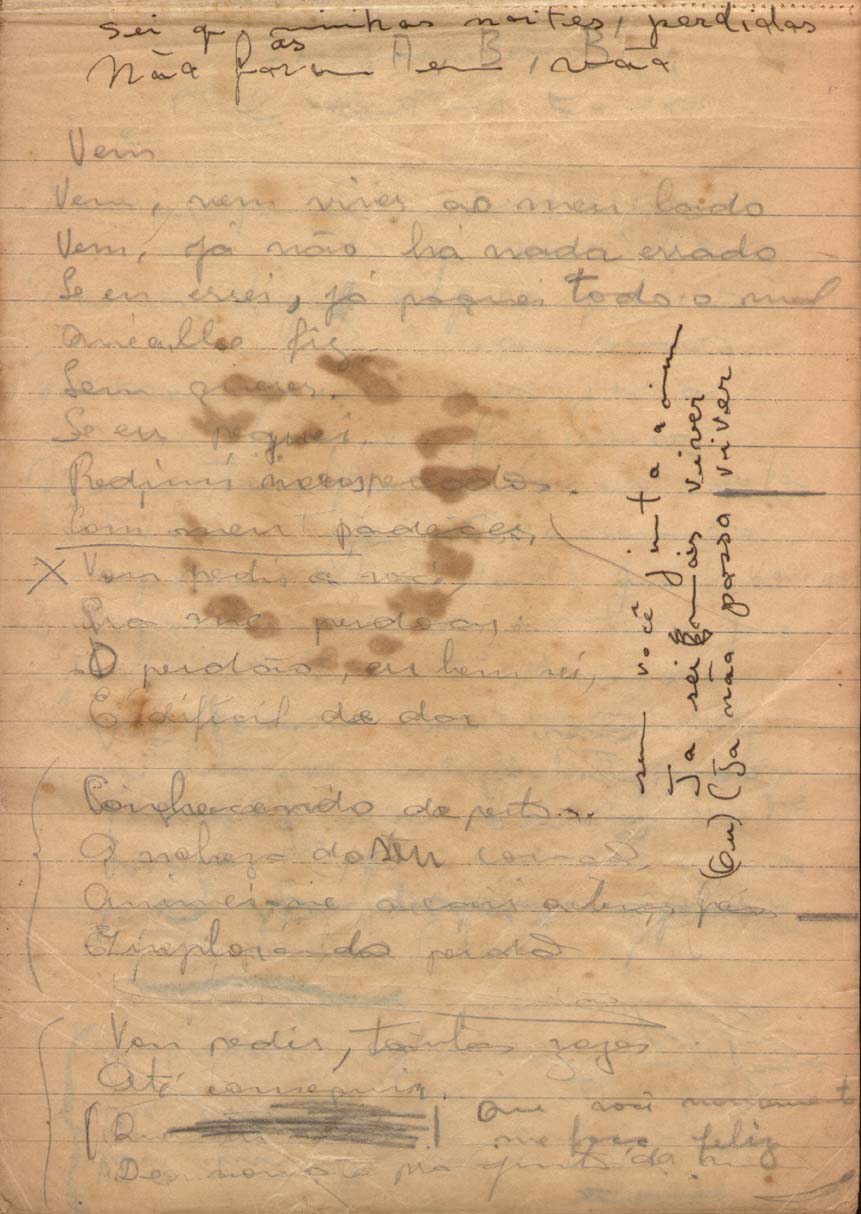 sei q minhas noites, perdidas
as
Não foram em vão
A, B, B
Vem
Vem, vem viver ao meu lado
Vem, já não há nada errado
Se eu errei, já paguei todo o mal
que lhe fiz
Sem querer.
Se eu pequei,
Redimi meus pecados.
Com meu padecer,
X Vou pedir a você,
Pra me perdoar,
O perdão, eu bem sei,
É difícil de dar
Conhecendo de perto
A nobreza do seu coração,
Animei-me a
E implorando perdão
Vou pedir, tantas vezes
Até conseguir,
Que você novamente
me faça feliz
De pra junto de
sem você junto a mim
Já sei mais viver
(Eu) (Já não posso viver